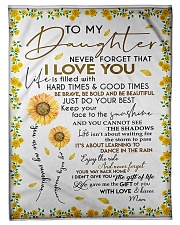 TO MY
Daughter
NEVER FORGET THAT
I LOVE YOU
life is filled with
HARD TIMES & GOOD TIMES
BE BRAVE, BE BOLD AND BE BEAUTIFUL
JUST DO YOUR BEST
Keep your
face to the sunshine
AND YOU CANNOT SEE
THE SHADOWS
Life isn't about waiting for
the storm to pass
IT'S ABOUT LEARNING TO
DANCE IN THE RAIN
Enjoy the ride
And never forget
YOUR WAY BACK HOME
I DIDN'T GIVE YOU the gift of life
Life gave me the GIFT of you
WITH LOVE &
Mom
You are my sunshine